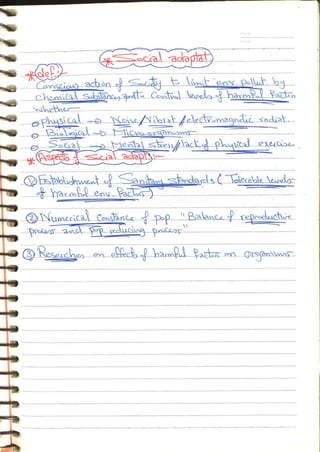 * Social adaptat.
* def:-
Conscious action of Society to limit env. pollut. by
chemical substances, and to control levels of harmful Factors
whether
o physical → Noise / Vibrat / electromagnetic radiat.
o Biological → Microorganisms
o Social → Mental stress / lack of physical exercise.
* Aspects of Social adapt.:-
① Establishment of Sanitary standards ( Tolerable levels
of harmful env. Factors )
② Numerical Constance of pop. "Balance of reproductive
process and pop reducing process"
③ Researches on effects of harmful Factors on organisms